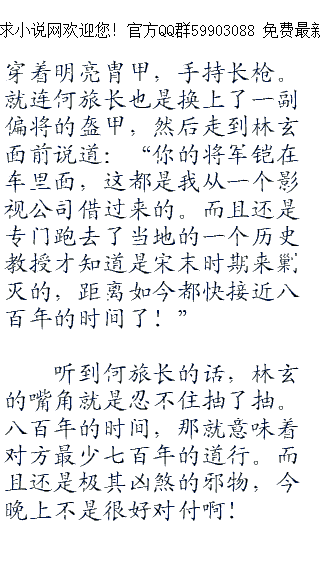 求小说网欢迎您！官方QQ群59903088 免费最新
穿着明亮胄甲，手持长枪。
就连何旅长也是换上了一副
偏将的盔甲，然后走到林玄
面前说道：“你的将军铠在
车里面，这都是我从一个影
视公司借过来的。而且还是
专门跑去了当地的一个历史
教授才知道是宋末时期来剿
灭的，距离如今都快接近八
百年的时间了！”
听到何旅长的话，林玄
的嘴角就是忍不住抽了抽。
八百年的时间，那就意味着
对方最少七百年的道行。而
且还是极其凶煞的邪物，今
晚上不是很好对付啊！